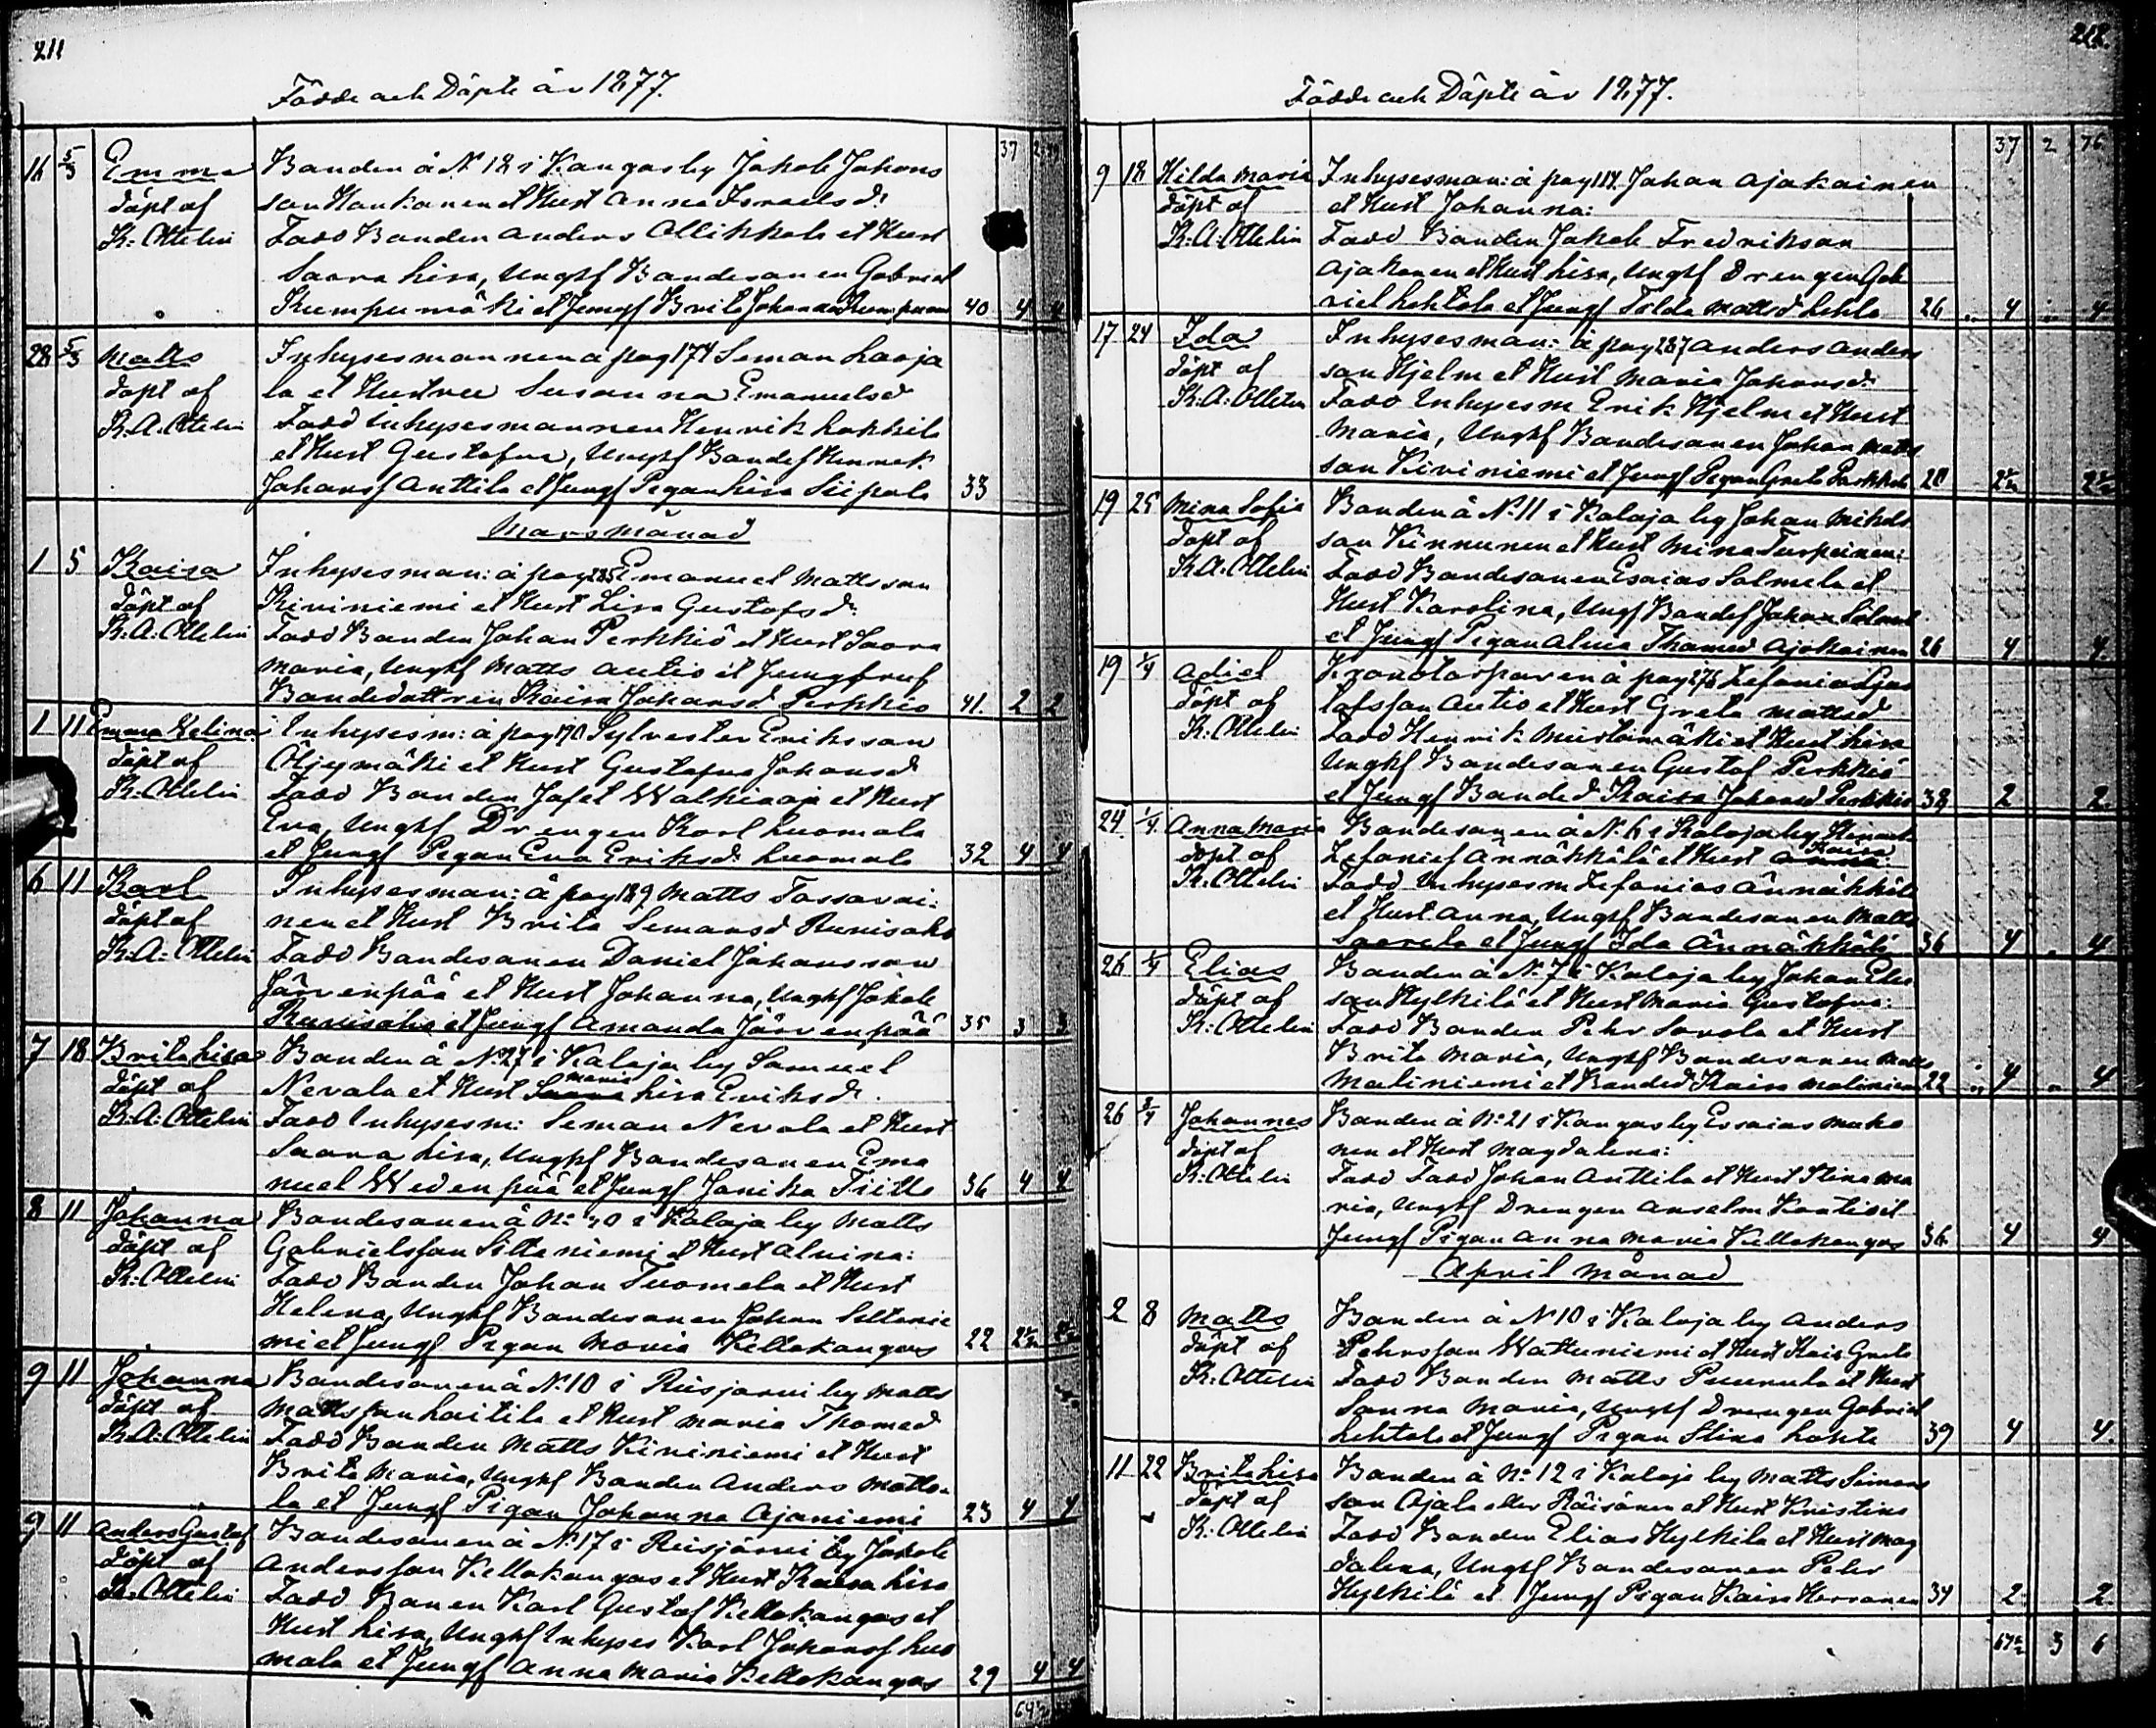 211
Födde och Döpte år 1877.
16 5/3 Emma Bonden å N 18 i Kangas by Jakob Johans
döpt af son Honkonen et Hust Anna Israelsd:
K: Ottelin Fadd Bonden Anders Ollikkala et Hust
Saara Lisa, Ungkf Bondesonen Gabriel
Kumpumäki et Jungf Brita Johanna 40 4 4
28 5/3 Matts Inhysesmannen å pag 174 Seman Laaja
döpt af la et Hustru Susanna Emanuelsd
K. A. Ottelin Fadd Inhysesmannen Henrik Lokkila
et Hust Gustafva, Ungkf Bondes Henrik
Johansf Anttila et Jungf Pigan Lisa Siipola 33
Mars månad
1 5 Kaisa Inhysesman: å pag 285 Emanuel Mattsson
döpt af Kiviniemi et Hust Lisa Gustafsd:
K. A. Ottelin Fadd Bonden Johan Perkkiö et Hust Saara
Maria, Ungkf Matts Autio et Jungfruf
Bondedottren Kaisa Johansd Perkkiö 41. 2 2
1 11 Emma Selina Inhysesm: å pag 170 Sylvester Eriksson
döpt af Öljymäki et Hust Gustafva Johansd
K. Ottelin Fadd Bonden Jafet Walkiaoja et Hust
Eva, Ungkf Drengen Karl Luomala
et Jungf Pigan Eva Eriksd: Luomala 32 4 4
6 11 Karl Inhysesman: å pag 189 Matts Tossavai:
döpt af nen et Hust Brita Semansd Runisaho
K. A. Ottelin Fadd Bondesonen Daniel Johansson
Järvenpää et Hust Johanna, Ungkf Jakob
Runisaho et Jungf Amanda Järvenpää 35 3 3
7 18 Brita Lisa Bonden å N. 27 i Kalaja by Samuel
döpt af Nevala et Hust Saara Maria Lisa Eriksd.
K. A. Ottelin Fadd Inhysesm: Seman Nevala et Hust
Saara Lisa, Ungkf Bondesonen Ema
nuel Wedenpää et Jungf Janika Tiitto 36 4 4
8 11 Johanna Bondesonen å No 40 i Kalaja by Matts
döpt af Gabrielsson Siltaniemi et Hust Alvina:
K: Ottelin Fadd Bonden Johan Tuomela et Hust
Helena, Ungkf Bondesonen Johan Siltanie
mi et Jungf Pigan Maria Kellokangas 22
9 11 Johanna Bondesonen å N. 10 i Reisjärvi by Matts
döpt af Mattsson Laitila et Hust Maria Thomasd
K. A. Ottelin Fadd Bonden Matts Kiviniemi et Hust
Brita Maria, Ungkf Bonden Anders Matto-
la et Jungf Pigan Johanna Ajaniemi 23 4 4
9 11 Anders Gustaf Bondesonen å N. 17 i Reisjärvi by Jakob
döpt af Andersson Kellokangas et Hust Kaisa Lisa
K. Ottelin Fadd Bonen Karl Gustaf Kellokangas et
Hust Lisa, Ungkf Inhyses Karl Johansf Luo
mala et Jungf Anna Maria Kellokangas 29 4 4
212.
Födde och Döpte år 1877.
37 2 76
9 18 Hilda Maria Inhysesman: å pag 114 Johan Ajakainen
döpt af et Hust Johanna:
K. A. Ottelin Fadd Bonden Jakob Fredriksson
Ajakanen et Hust Lisa, Ungkf Drengen Gab
riel Lehtola et Jungf Tilda Mattsd Lehto 26 4 4
17 24 Ida Inhysesman: å pag 287 Anders Anders
döpt af son Hjelm et Hust Maria Johansd:
K. A. Ottelin Fadd Inhysesm Erik Hjelm et Hust
Maria, Ungkf Bondesonen Johan Matts
son Kiviniemi et Jungf Pigan Greta 20
19 25 Mina Sofia Bonden å N. 11 i Kalaja by Johan Mikels
döpt af son Kinnunen et Hust Mina Turpeinen:
K. A. Ottelin Fadd Bondesonen Esaias Salmela et
Hust Karolina, Ungf Bondes Johan
et Jungf Pigan Alma Thomasd Ajokainen 26 4 4.
19 1/4 Adiel Kronotorparen å pag 275 Zefanias Gus
döpt af tafsson Autio et Hust Greta Mattsd
K. Ottelin Fadd Henrik Mustamäki et Hust Lisa
Ungkf Bondesonen Gustaf Perkkiö
et Jungf Bonded Kaisa Johansd Perkkiö 38 2 2.
24 1/4 Anna Maria Bondesonen å N. 6 i Kalaja by
döpt af Zefanief Ännäkkälä et Hust Anna Kaisa
K. Ottelin Fadd Inhysesm Zefanias Ännäkkälä
et Hust Anna, Ungkf Bondesonen Matts
Saarela et Jungf Ida Ännäkkälä 36 4 4
26 1/4 Elias Bonden å N. 7 i Kalaja by Johan Elis
döpt af son Hylkilä et Hust Maria Gustafva:
K: Ottelin Fadd Bonden Pehr Savola et Hust
Brita Maria, Ungkf Bondesonen Matts
Maliniemi et Bonded Kaisa Maliniemi 22 4 4
26 2/4 Johannes Bonden å No 21 i Kangas by Essaias Maho
döpt af nen et Hust Magdalena:
K: Ottelin Fadd Fadd Johan Anttila et Hust Stina Ma
ria, Ungkf Drengen Anselm
Jungf Pigan Anna Maria Kellokangas 36 4 4
April månad
2 8 Matts Bonden å N 10 i Kalaja by Anders
döpt af Pehrsson Wattuniemi et Hust Kaisa Greta
K: Ottelin Fadd Bonden Matts Puurula et Hust
Sanna Maria, Ungkf Drengen Gabriel
Lehtola et Jungf Pigan Stina Lehto 39 4 4.
11 22 Brita Lisa Bonden å No 12 i Kalaja by Matts Simons
döpt af son Ojala eller Räisänen et Hust Kristina
K: Ottelin Fadd Bonden Elias Hylkilä et Hust Mag
dalena, Ungkf Bondesonen Pehr
Hylkilä et Jungf Pigan Kaisa Herranen 34 2 2.
67½ 3 6